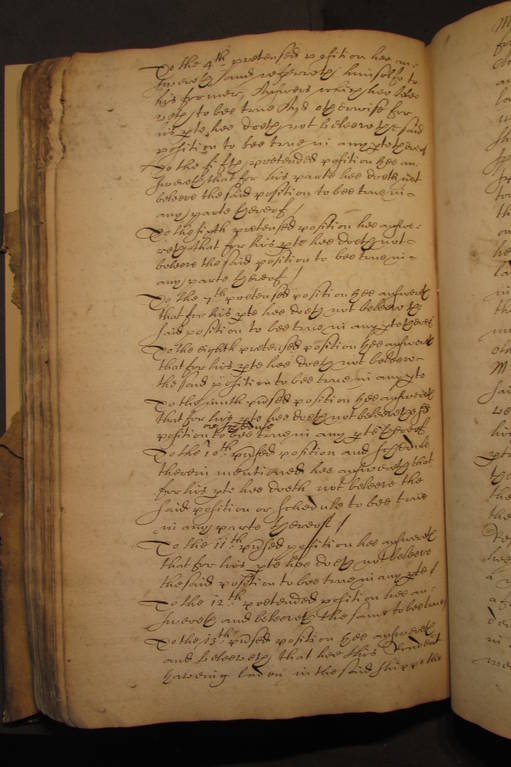 To the 4th pretensed position hee an:
swereth and referreth himselfe to
his former Answers which hee bele
veth to bee true And otherwise for
his pte hee doeth not beleeve the said
position to bee true in any pte thereof
To the fifth pretended position hee an:
swereth that for his parte hee doeth not
beleeve the said position to bee true in
any parte thereof /
To the sixth pretensed position hee answe:
reth that for his pte hee doeth not
beleeve the said position to bee true in
any parte thereof /
To the 7th pretensed position hee answereth
that for his pte hee doeth not beleeve the
said position to bee true in any pte thereof
To the eighth pretensed position hee answereth
that for his pte hee doeth not beleeve
the said position to bee true in any pte
To the ninth pensed position hee answereth
that for his pte hee doeth not beleeve the sd
position or schedule to bee true in any pte thereof
To the 10th pensed position and schedule
therein mentioned hee answereth that
for his pte hee doeth not beleeve the
said position or schedule to bee true
in any parte thereof /
To the 11th pensed position hee answereth
that for his pte hee doeth not beleeve
the said position to bee true in any pte /
To the 12th pretended position hee an:
swereth and beleeveth the same to bee true
To the 13th pensed position hee answereth
and beleeveth that hee this Rendent
haveing in the said shipp the